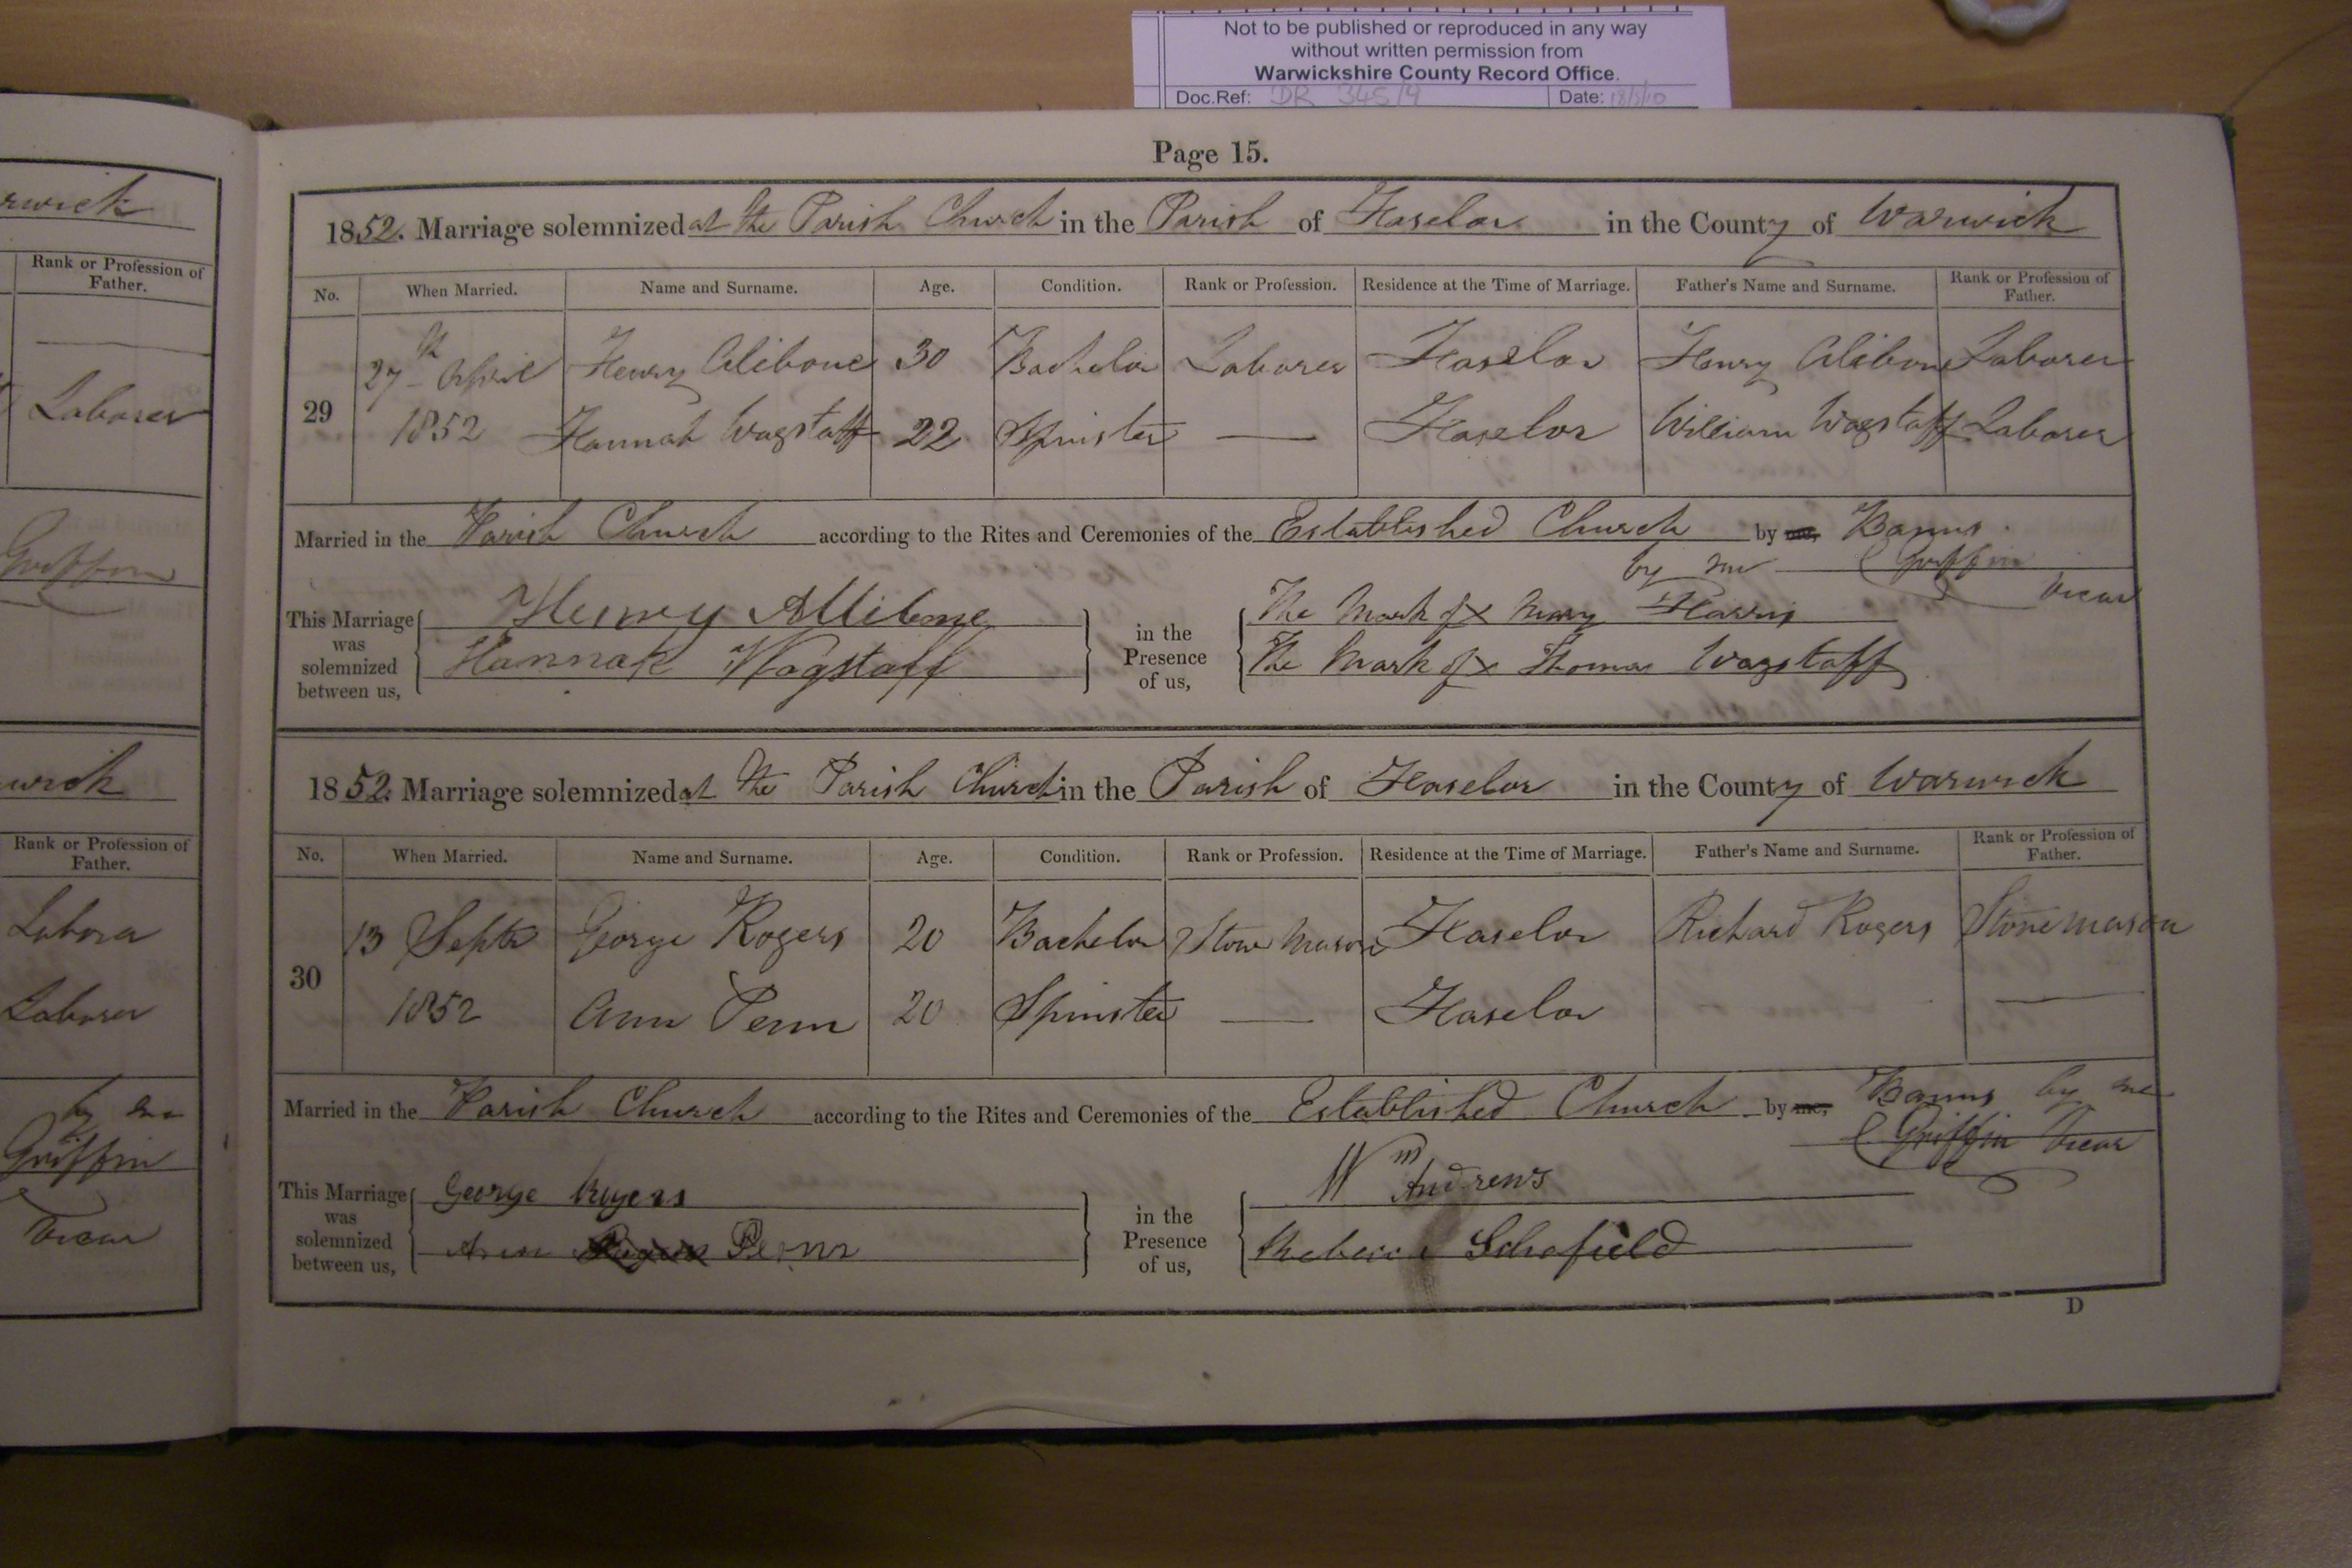 Not to be published or reproduced in any way
without written permission from
Warwickshire County Record Office.
Doc.Ref: DR 345/9 Date: 18/3/10
Page 15.
rwick
Rank or Profession of
Father.
Laborer
Griffin
wick
Rank or Profession of
Father.
Laborer
Laborer
by me
Griffin
Vicar
1852. Marriage solemnized at the Parish Church in the Parish of Haselor in the County of Warwick
No. When Married. Name and Surname. Age. Condition. Rank or Profession. Residence at the Time of Marriage. Father's Name and Surname. Rank or Profession of Father.
27th April Henry Alibone 30 Bachelor Laborer Haselor Henry Alibone Laborer
29
1852 Hannah Wagstaff 22 Spinster — Haselor William Wagstaff Laborer
Married in the Parish Church according to the Rites and Ceremonies of the Established Church by me, Banns
by me C Griffin
Vicar
This Marriage was solemnized between us, Henry Allibone Hannah Wagstaff
in the Presence of us, The Mark of x Mary Harris
The Mark of x Thomas Wagstaff
1852. Marriage solemnized at the Parish Church in the Parish of Haselor in the County of Warwick
No. When Married. Name and Surname. Age. Condition. Rank or Profession. Residence at the Time of Marriage. Father's Name and Surname. Rank or Profession of Father.
13 Septr George Rogers 20 Bachelor Stone Mason Haselor Richard Rogers Stone mason
30
1852 Ann Penn 20 Spinster — Haselor —
Married in the Parish Church according to the Rites and Ceremonies of the Established Church by me, Banns by me
C Griffin Vicar
This Marriage was solemnized between us, George Rogers
Ann Rogers Penn
in the Presence of us, Wm Andrews
Rebecca Schofield
D